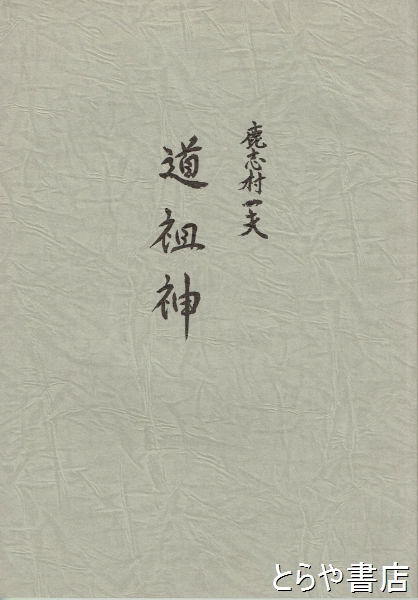 鹿志村一夫
道祖神
とらや書店